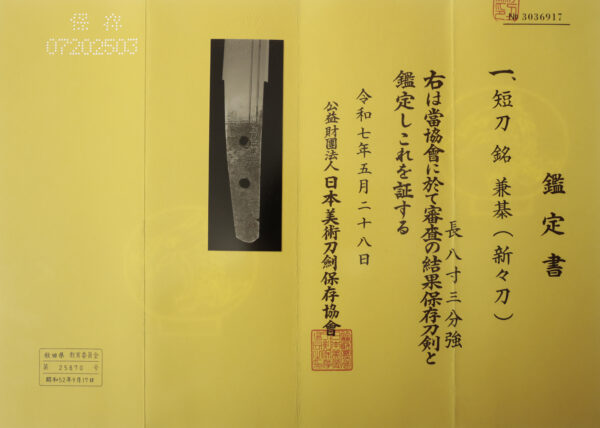 № 3036917
鑑定書
一、短刀 銘 兼綦(新々刀)
長 八寸三分強
右は當協會に於て審査の結果保存刀剣と
鑑定しこれを証する
令和七年五月二十八日
公益財團法人日本美術刀劍保存協會
保存
07202503
秋田県 教育委員会
第 25870 号
昭和52年9月17日